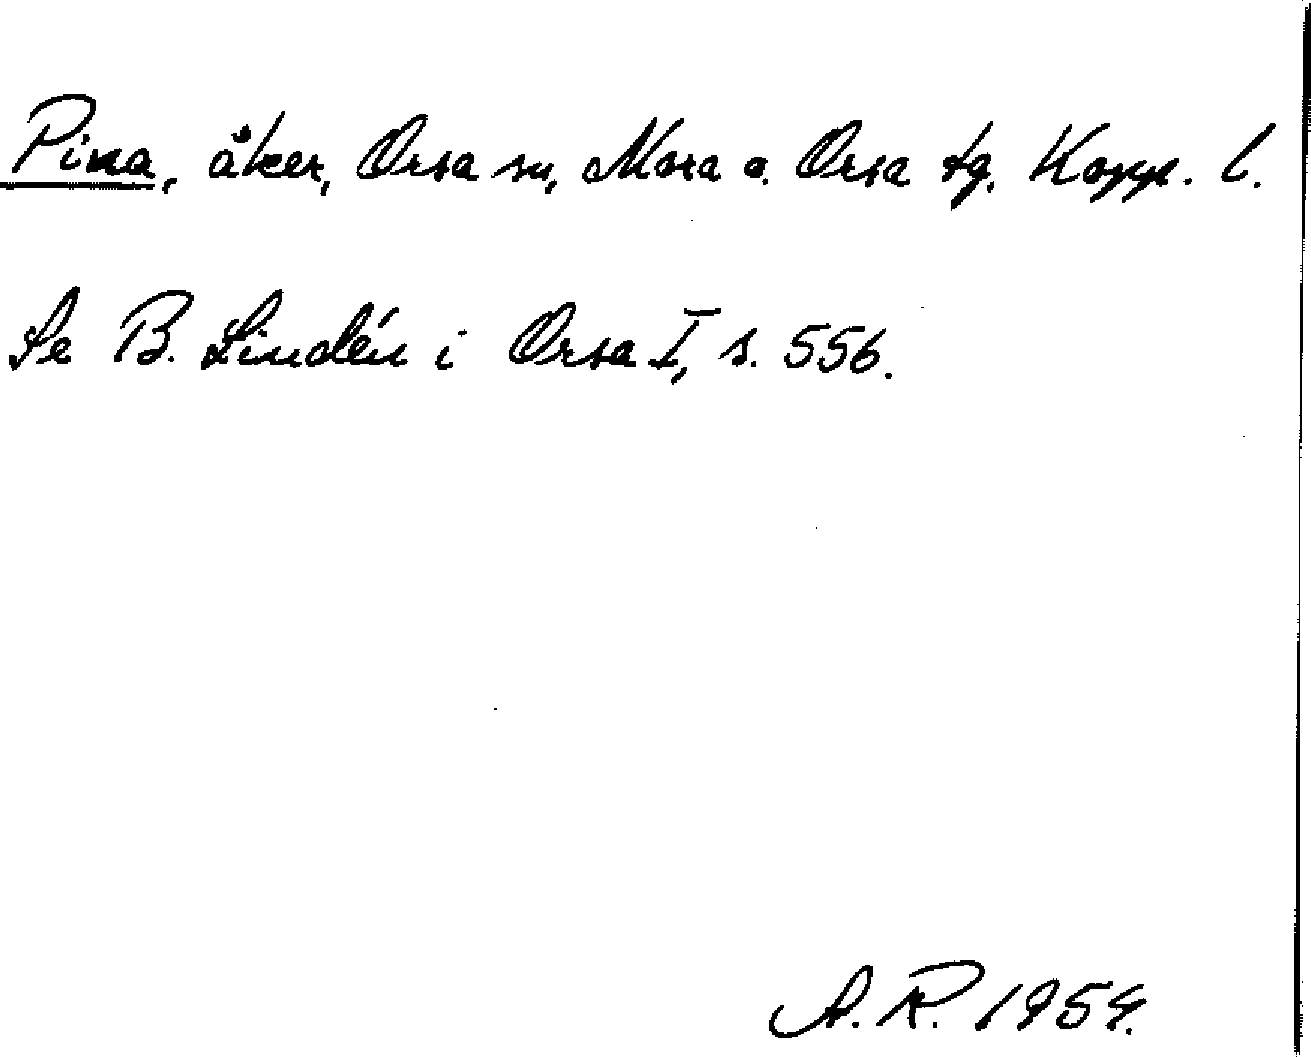 Pina, åker, Orsa sn, Mora o. Orsa tg, Kopp. l.
Se B. Lindén i Orsa I, s. 556.
A.R. 1954.